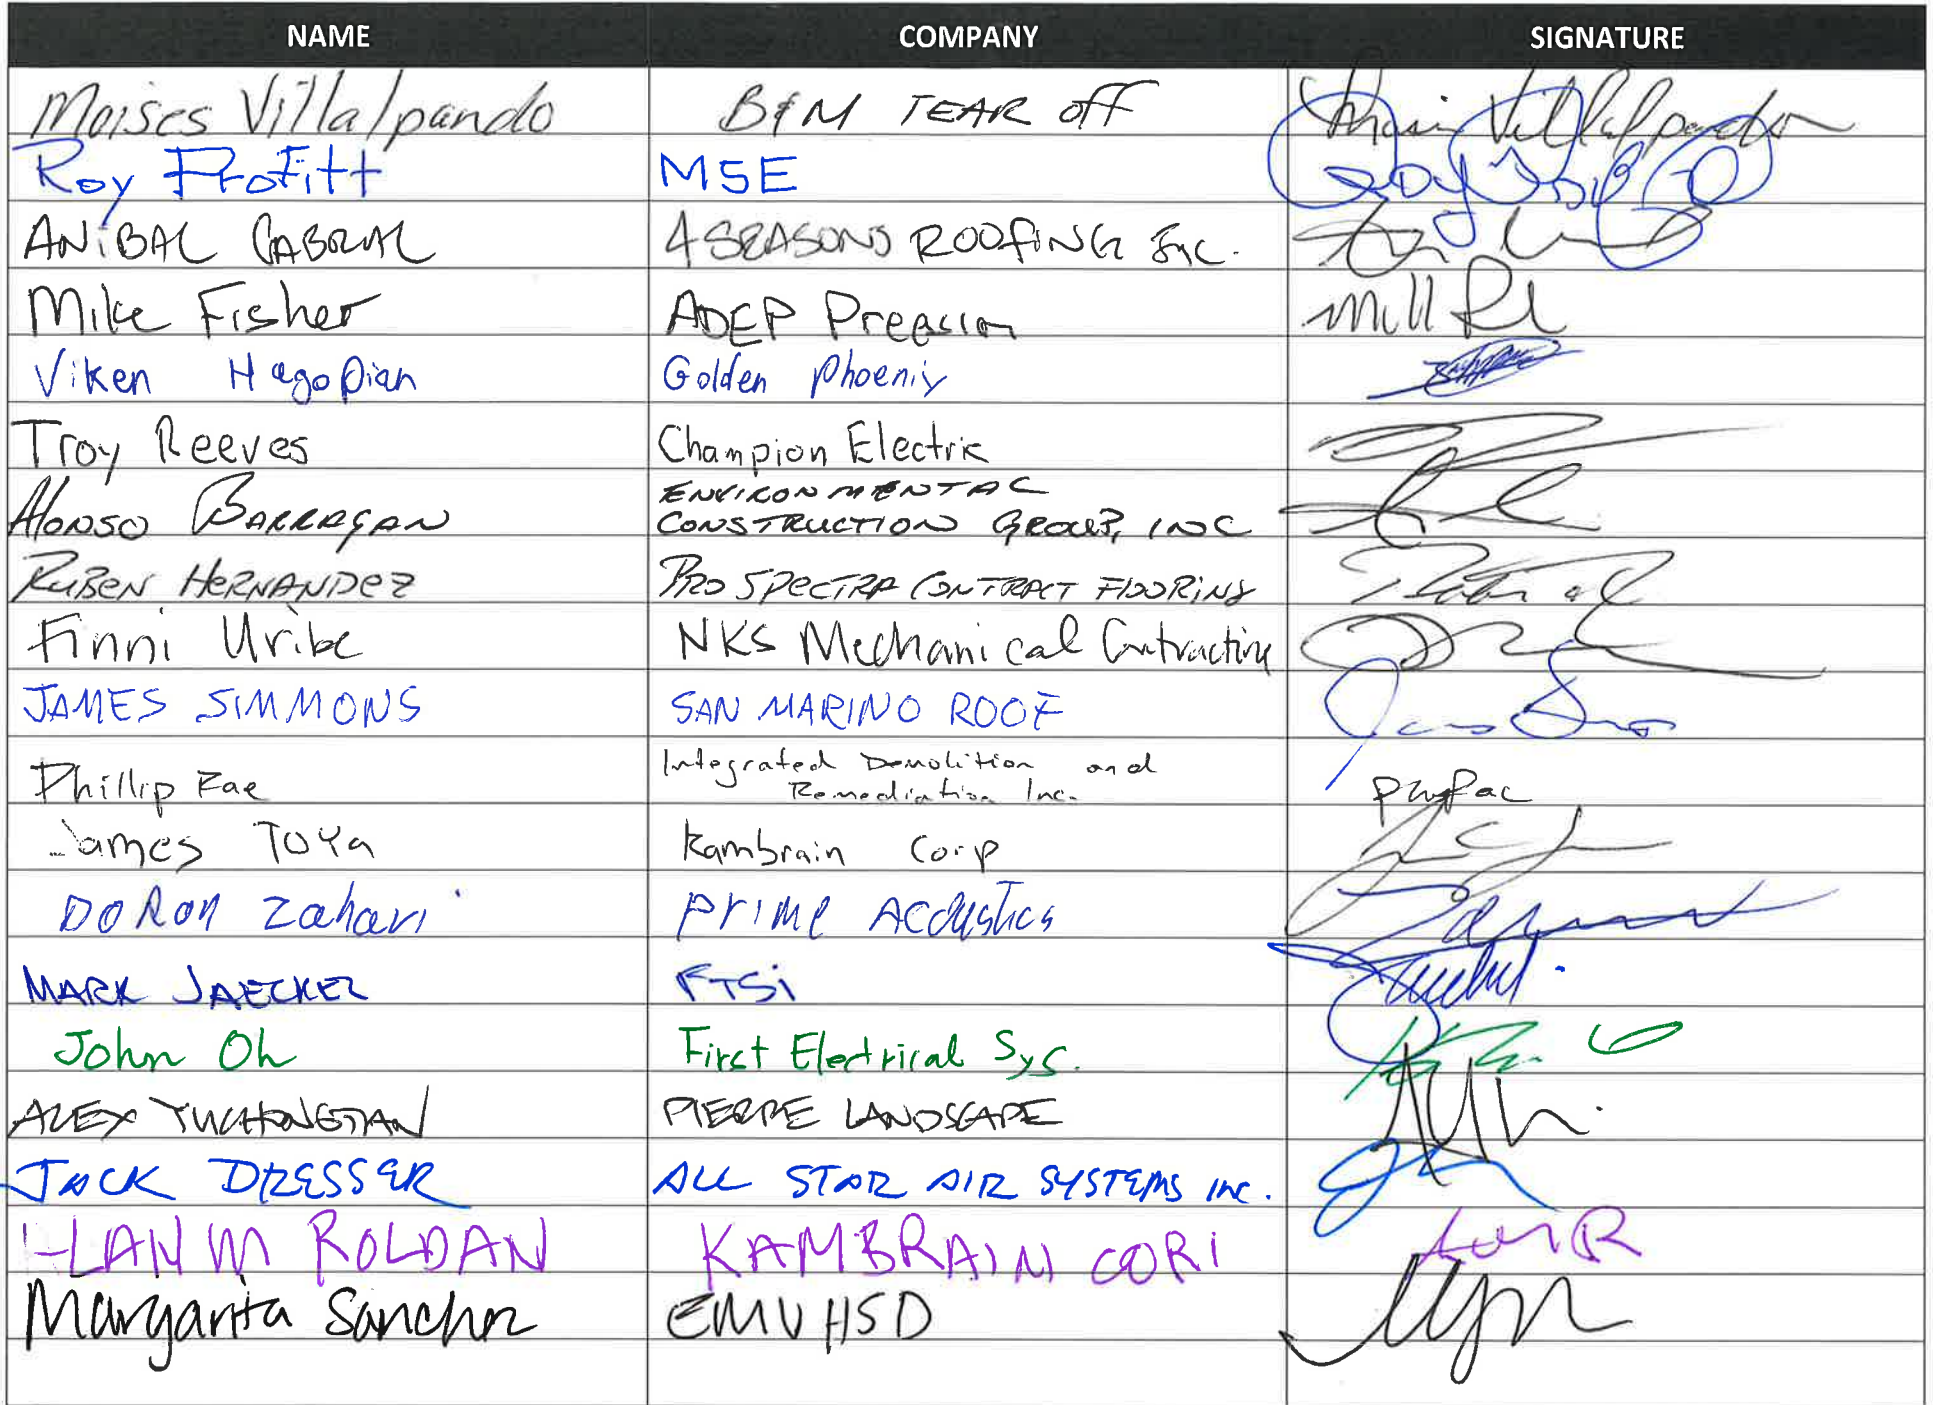 NAME COMPANY SIGNATURE
Moises Villalpando B&M TEAR off
Roy Profitt MSE
ANiBAL CABRAL 4 SEASONS ROOFING Inc.
Mike Fisher ADEP
Viken Hagopian Golden Phoenix
Troy Reeves Champion Electric
Alonso BARRAGAN ENVIRONMENTAL
CONSTRUCTION GROUP, INC
RUBEN HERNANDEZ PRO SPECTRA CONTRACT FLOORING
Finni Uribe NKS Mechanical Contracting
JAMES SIMMONS SAN MARINO ROOF
Phillip Integrated Demolition and
Remediation Inc.
James TOYa Kambrain Corp
DORON Zahavi Prime Acoustics
MARK JAECKEL FTSi
John Oh First Electrical Sys.
ALEX PIERRE LANDSCAPE
JACK DRESSER ALL STAR AIR SYSTEMS INC.
ROLDAN KAMBRAIN
Margarita Sanchez EMUHSD